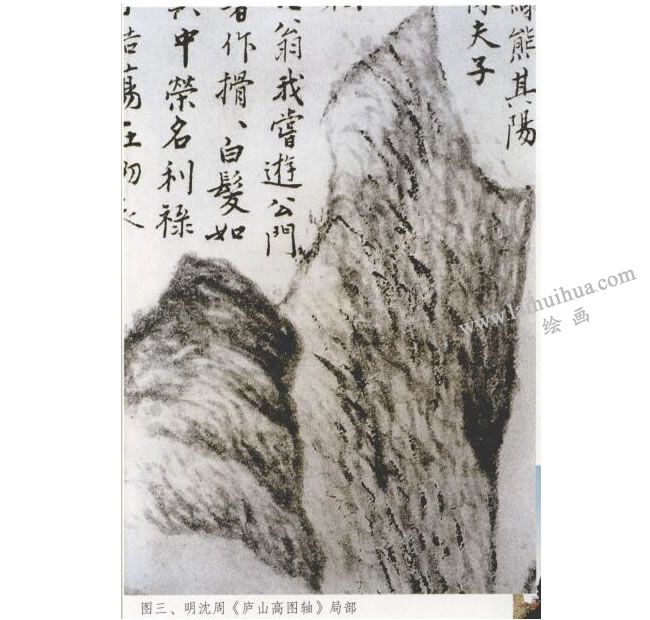 熊其陽
夫子
翁我嘗遊公門
作搰、白髮如
中榮名利祿
www.lzhuihua.com
绘画
图三、明沈周《庐山高图轴》局部